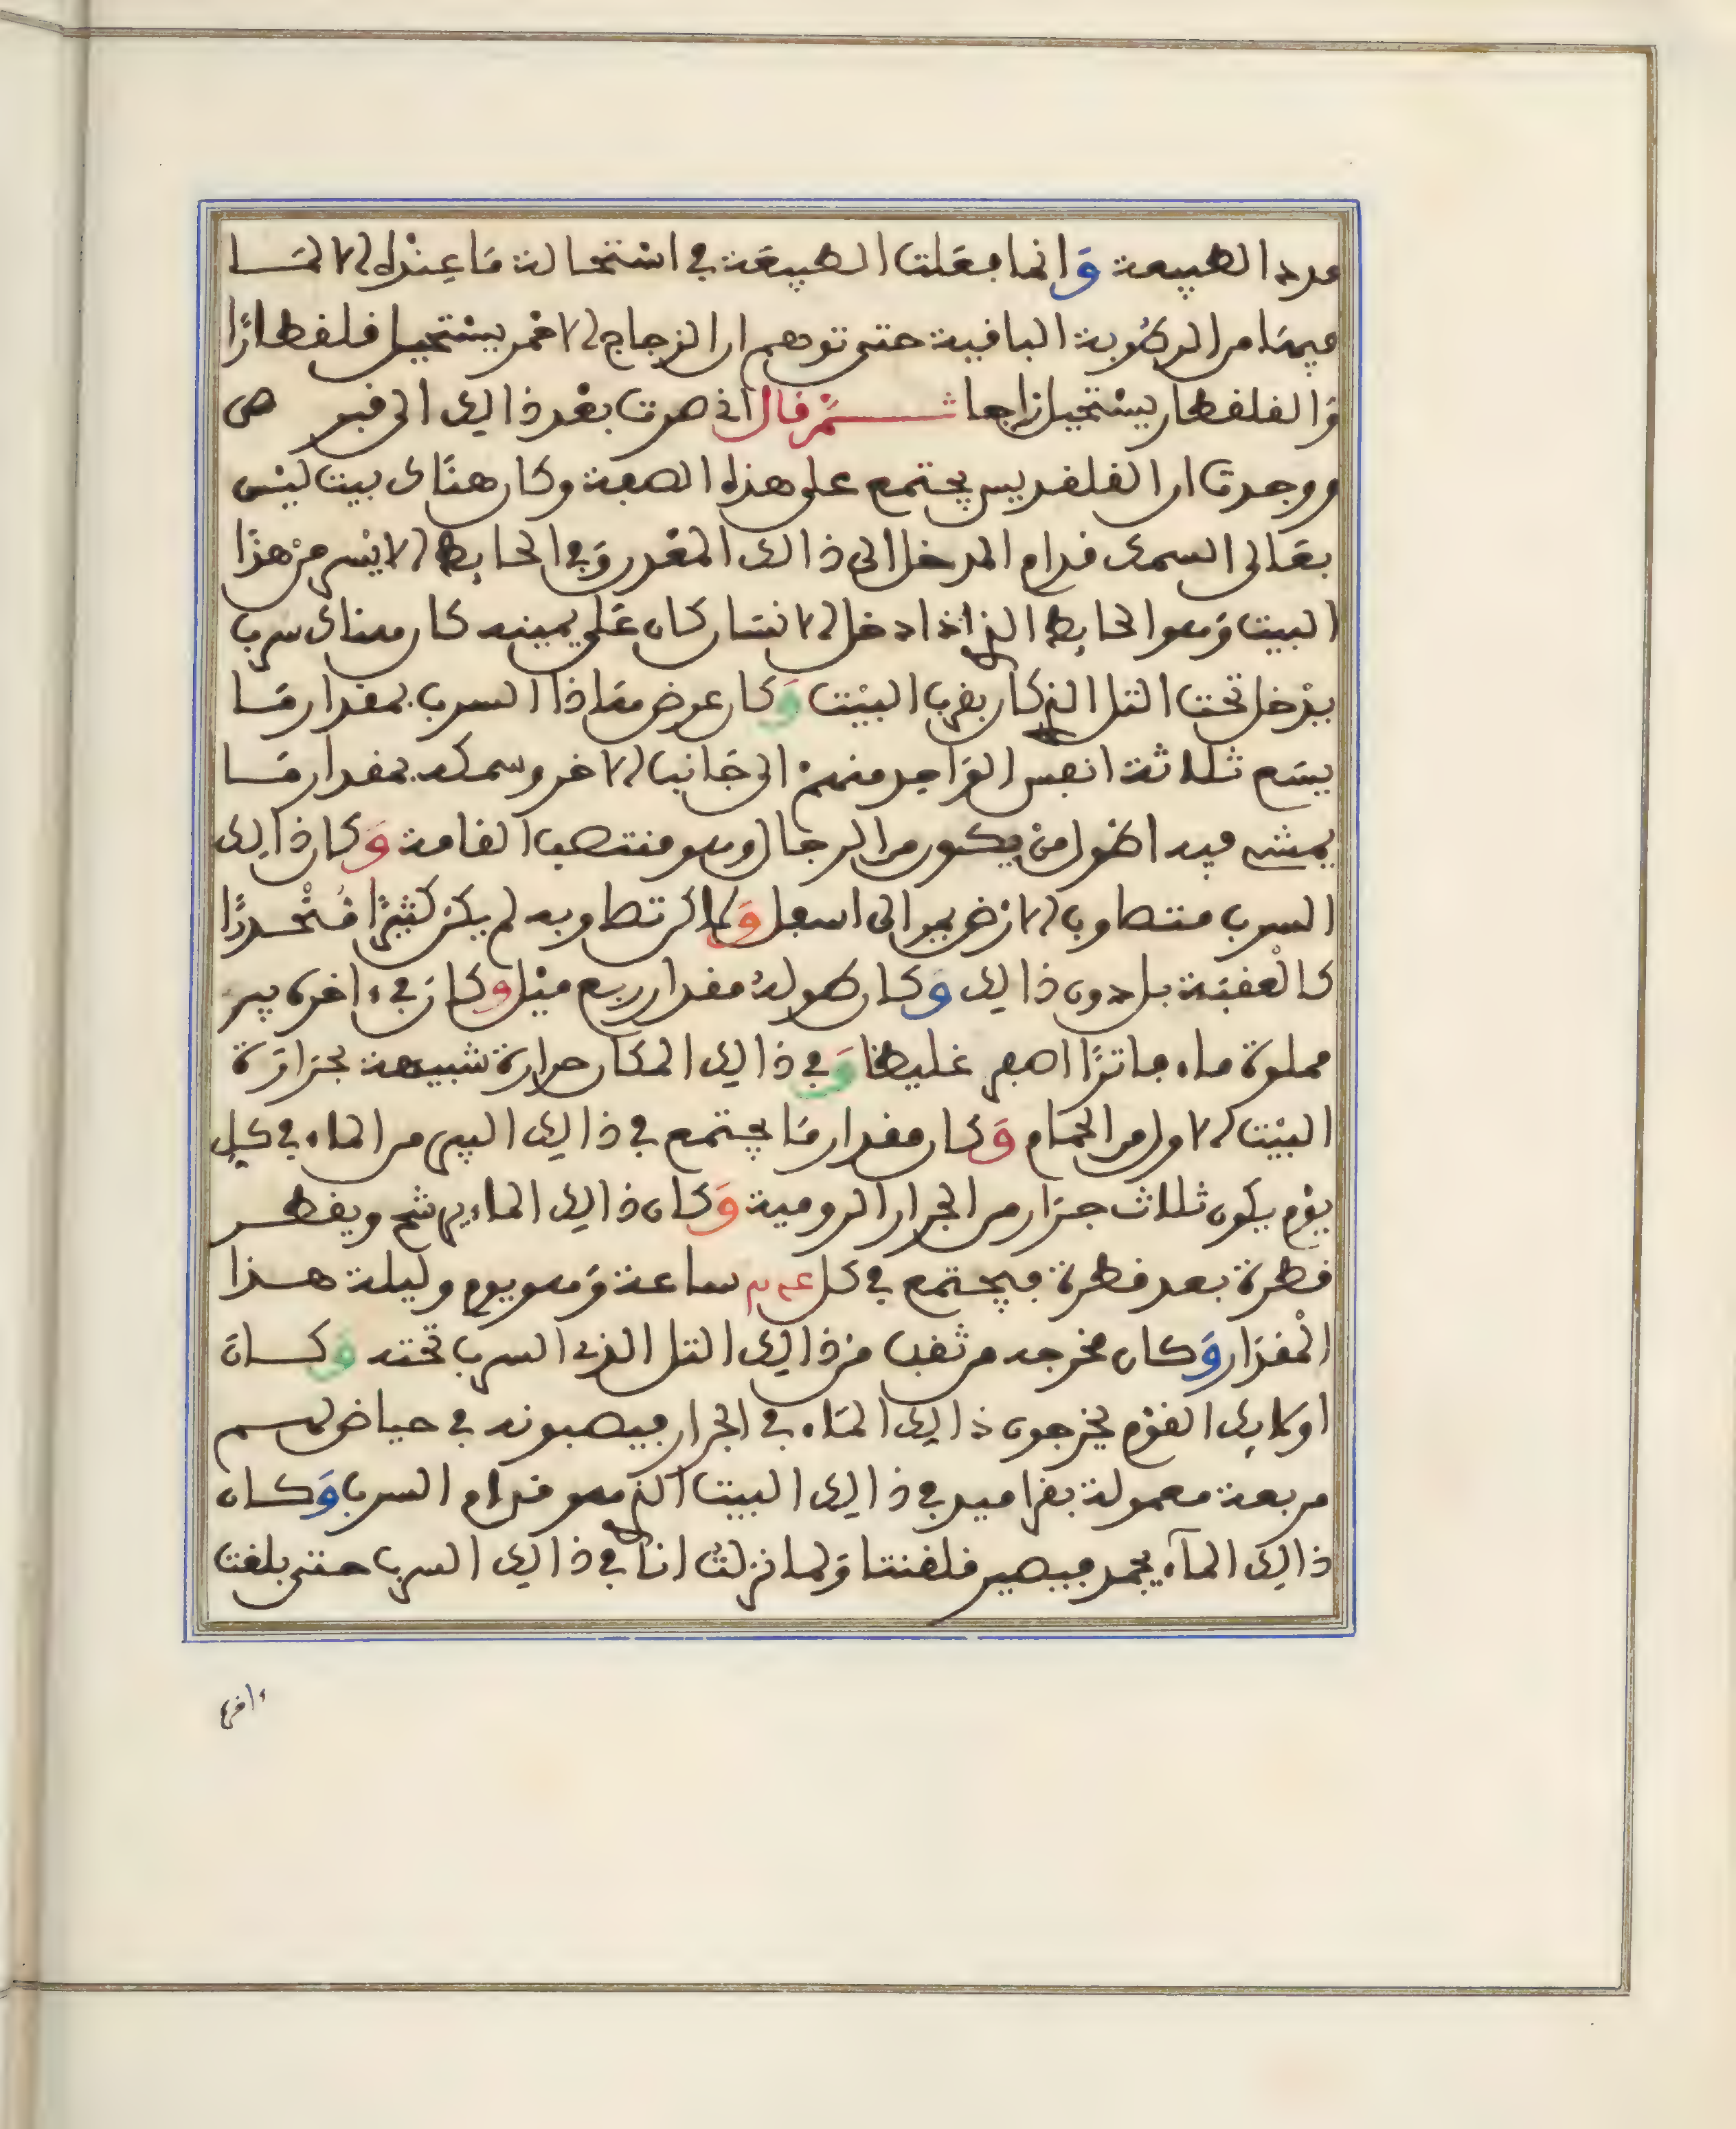 مرد الطبيعة وانما بعلت الطبيعة في استحالة ما عنده الا لما
فيها من الرطوبة الباقية حتى توهم ان الزجاج الاخمر يستحيل قلقطارًا
والقلقطار يستحيل زاجا ثم قال اني صرت بعد ذالك الى قبرص
ووجدت ان القلقديس يجتمع على هذه الصفة وكان هناك بيت ليس
بعالى السمك قدام المدخل الى ذالك المعدن وفي الحايط الايسر من هذا
البيت وهو الحايط الذي اذا دخل الانسان كان على يمينه كان هناك سرب
يدخل تحت التل الذي كان بقرب البيت وكان عرض هاذا السرب بمقدار ما
يسع ثلاثة انفس الواحد منهم الى جانب الاخر وسمكه بمقدار ما
يمشي فيه اطول من يكون من الرجال وهو منتصب القامة وكان ذالك
السرب متطاوب الارض يمر الى اسفل ولاكن تطاوبه لم يكن كثيرًا منحدرًا
كالعقبة بل دون ذالك وكان طوله مقدار ربع ميل وكان في ءاخره بير
مملوة ماء فاترًا اصفر غليظا وفي ذالك المكان حرارة شبيهة بحرارة
البيت الاول من الحمام وكان مقدار ما يجتمع في ذالك البير من الماء في كل
يوم يكون ثلاث جرار من الجرار الرومية وكان ذالك الماء يرشح ويقطر
قطرة بعد قطرة فيجتمع في كل ساعة وهو يوم وليلة هذا
المقدار وكان مخرجه من ثقب من ذالك التل الذي السرب تحته وكان
اولايك القوم يخرجون ذالك الماء في الجرار فيصبونه في حياض لهم
مربعة معمولة بقراميد في ذالك البيت الذي هو قدام السرب وكان
ذالك الماء يجمد فيصير قلقنتا ولما نزلت انا في ذالك السرب حتى بلغت
ءاخره